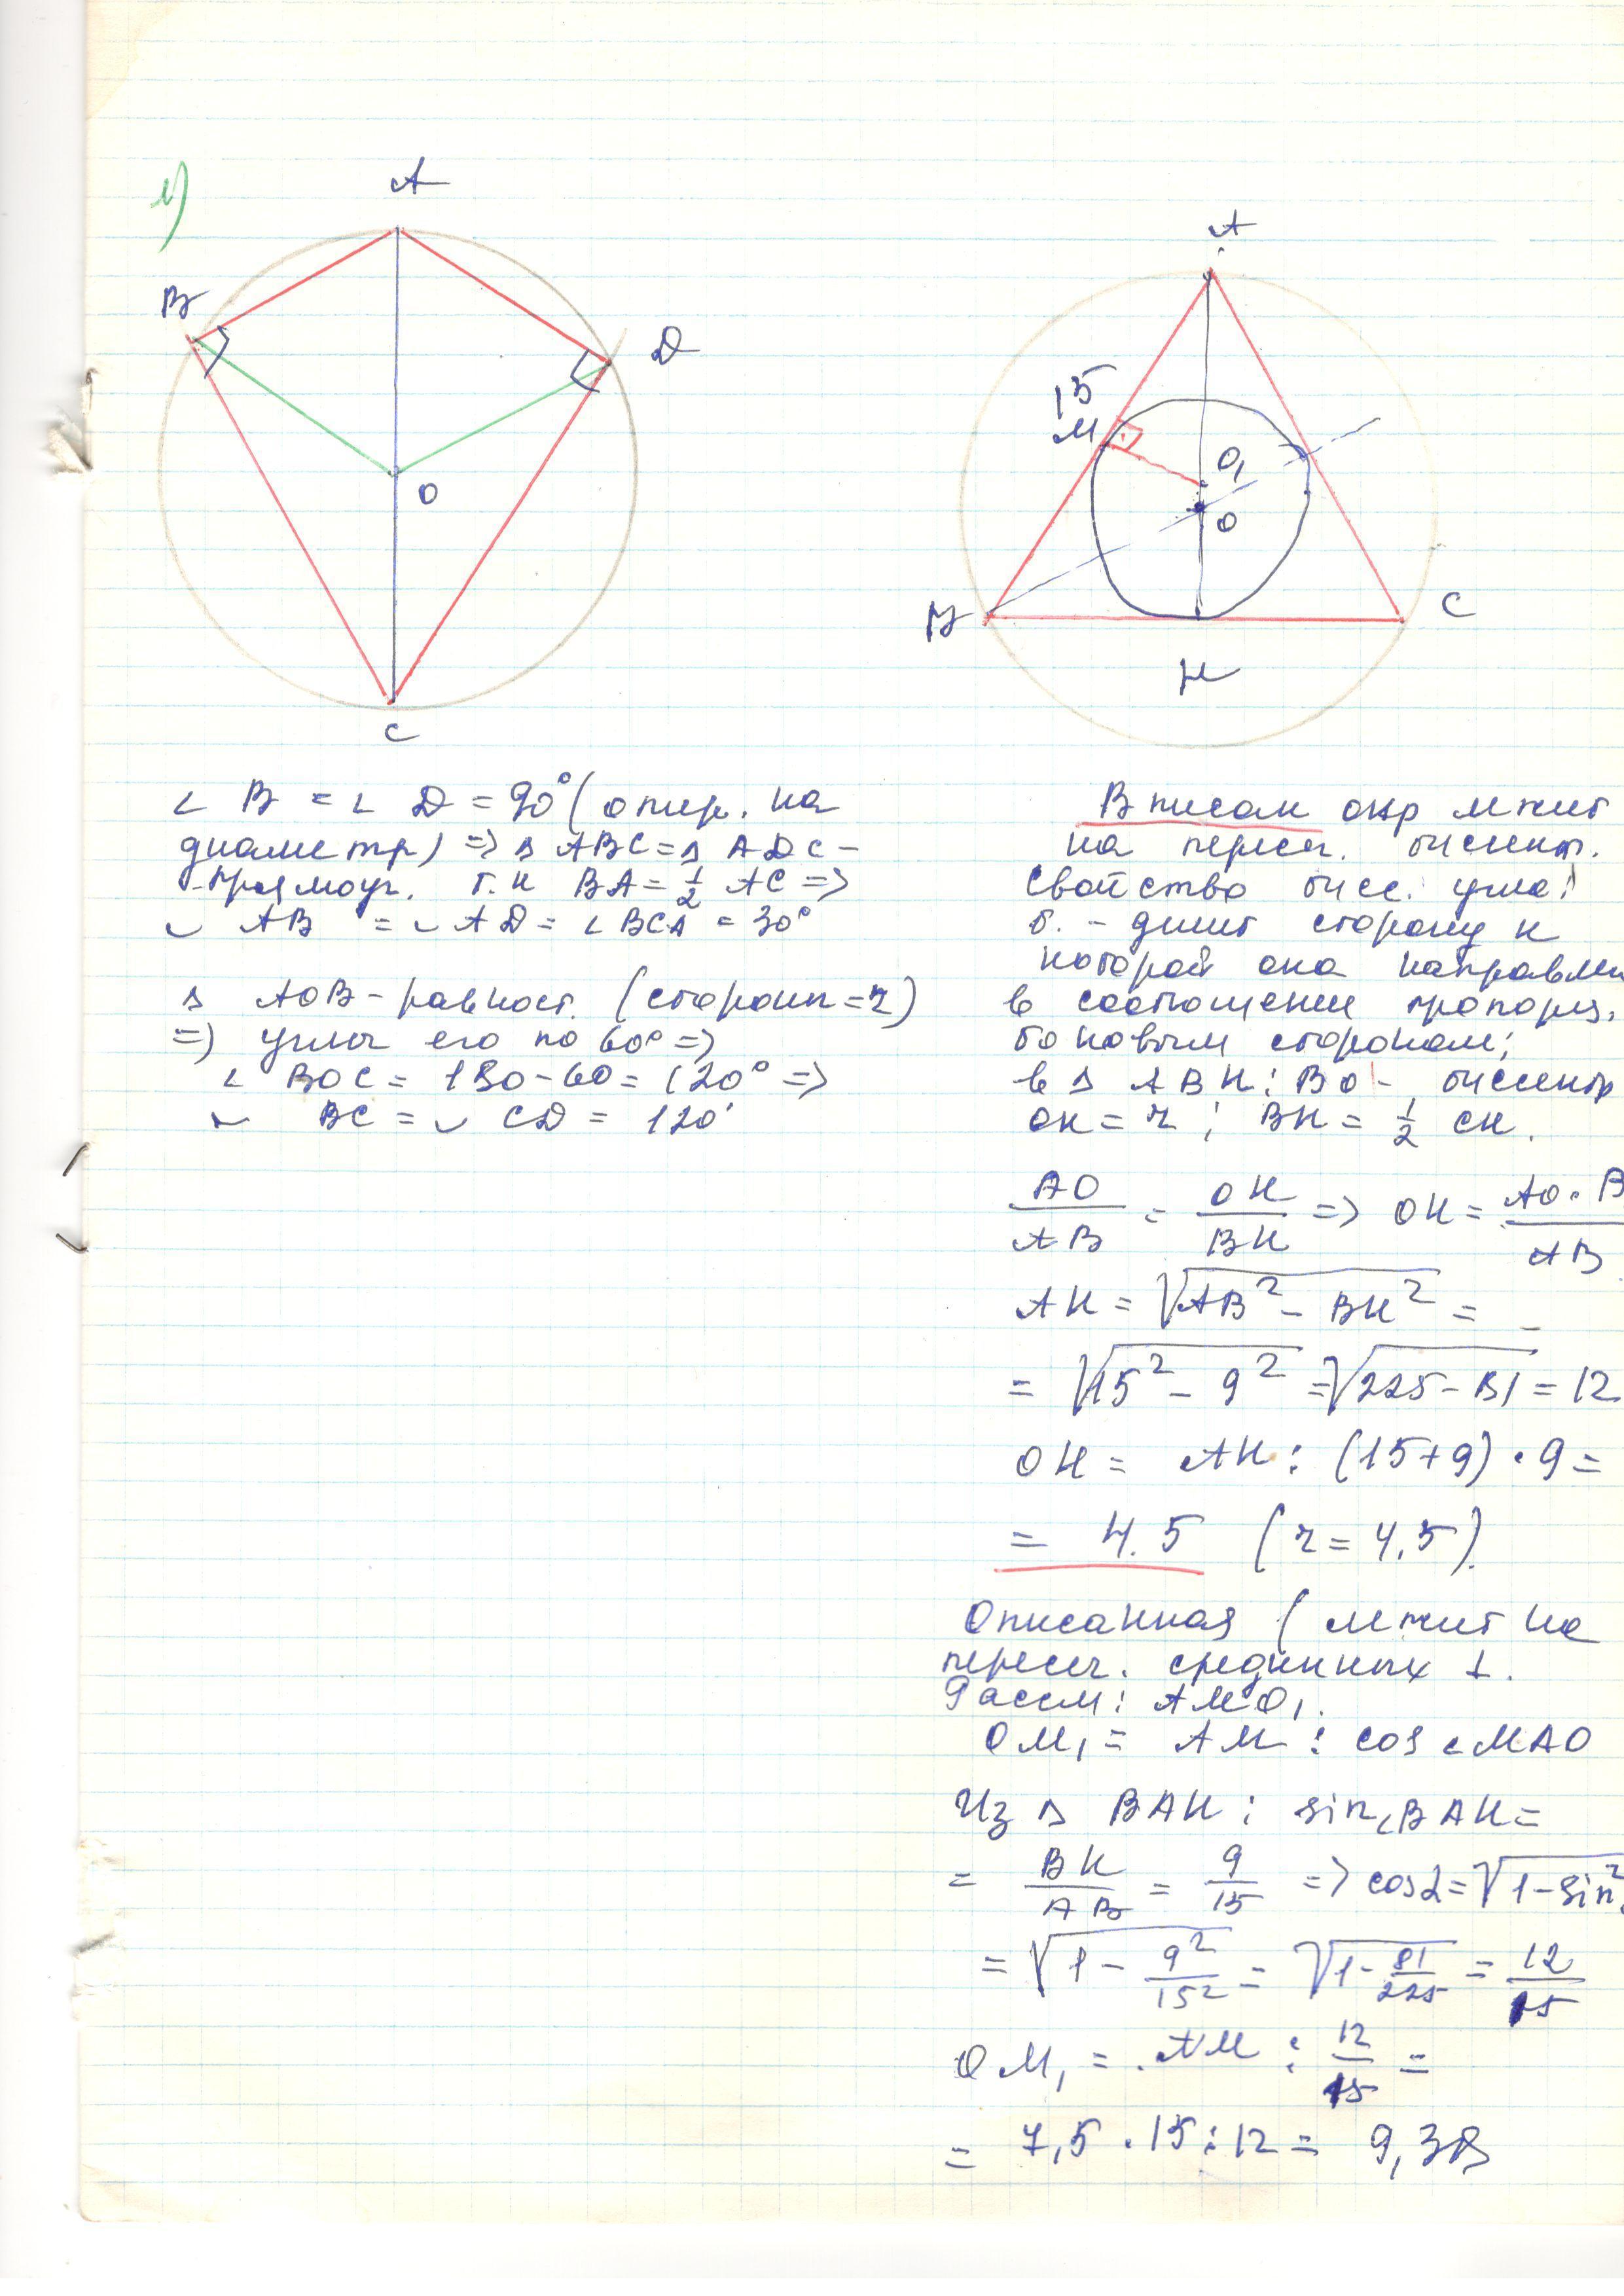 1)
A
B
D
O
C
∠ B = ∠ D = 90° (опир. на
диаметр) => Δ ABC = Δ ADC -
- прямоуг. т.к BA = 1/2 AC =>
◡ AB = ◡ AD = ∠ BCA = 30°
Δ AOB - равност. (стороны = r)
=> углы его по 60° =>
∠ BOC = 180 - 60 = 120° =>
◡ BC = ◡ CD = 120°
A
15
M
O₁
O
B
C
K
Вписан окр лежит
на пересеч. биссект.
Свойство бисс. угла:
б. - делит сторону к
которой она направлен
в соотношении пропорц.
боковым сторонам;
в Δ ABK: BO - биссектр
OK = r; BK = 1/2 CK.
AO/AB = OK/BK => OK = AO · B/AB
AK = √(AB² - BK²) =
= √(15² - 9²) = √(225 - 81) = 12
OK = AK : (15+9) · 9 =
= 4.5 (r = 4,5)
Описанная (лежит на
пересеч. срединных ⊥.
Рассм: AMO₁.
OM₁ = AM : cos ∠MAO
Из Δ BAK: sin∠BAK =
= BK/AB = 9/15 => cosα = √(1 - sin²
= √(1 - 9²/15²) = √(1 - 81/225) = 12/15
OM₁ = AM : 12/15 =
= 7,5 · 15 : 12 = 9,38